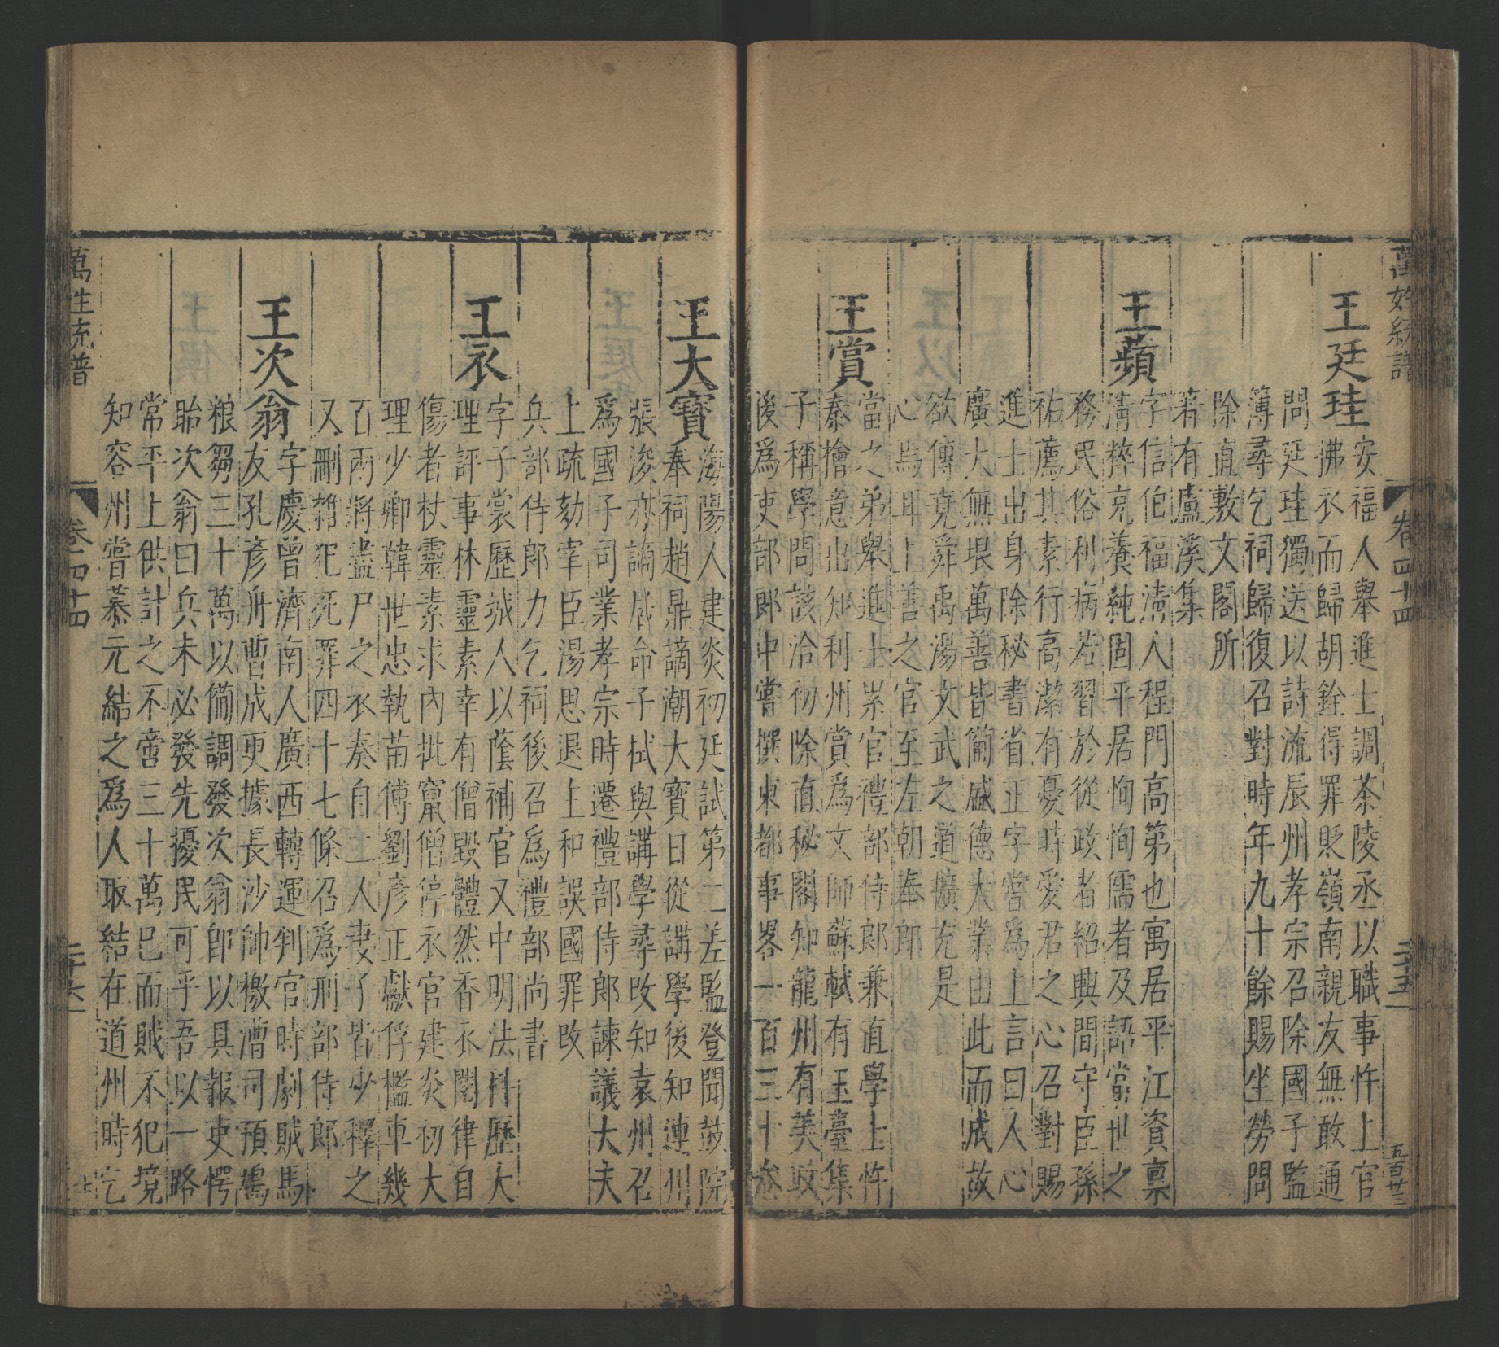 萬姓統譜 卷四十四
王廷珪
安福人舉進士調茶陵丞以職事忤上官
拂衣而歸胡銓得罪貶嶺南親友無敢通
問廷珪獨送以詩流辰州孝宗召除國子監
簿尋乞祠歸復召對時年九十餘賜坐勞問
除直敷文閣所
著有盧溪集
王蘋
字信伯福清人程門高第也寓居平江資稟
清粹充養純固平居恂恂儒者及語當世之
務民俗利病若習於從政者紹興間守臣孫
祐薦其素行高潔有憂時愛君之心召對賜
進士出身除秘書省正字嘗爲上言曰人心
廣大無垠萬善皆備盛德大業由此而成故
欲傳堯舜禹湯文武之道擴充是
心焉耳上善之官至左朝奉郎
王賞
當之弟舉進士累官禮部侍郎兼直學士忤
秦檜意出知利州賞爲文師蘇軾有玉臺集
子稱學問該洽初除直秘閣知龍州有美政
後爲吏部郎中嘗撰東都事畧一百三十卷
王大寶
海陽人建炎初廷試第二差監登聞鼓院
奉祠趙鼎謫潮大寶日從講學後知連州
張浚亦謫居命子栻與講學尋改知袁州召
爲國子司業孝宗時遷禮部侍郎諫議大夫
上疏劾宰臣湯思退上和誤國罪改
兵部侍郎力乞祠後召爲禮部尚書
王衣
字子裳歷城人以蔭補官又中明法科歷大
理評事林靈素幸有僧毀體然香不閣律自
傷者杖靈素求內批竄僧停衣官建炎初大
理少卿韓世忠執苗傅劉彥正獻俘檻車幾
百兩將盡尸之衣奏自二人妻子皆少釋之
又刪雜犯死罪四十七條召爲刑部侍郎
王次翁
字慶曾濟南人廣西轉運判官時劇賊馬
友孔彥舟曹成更據長沙帥檄漕司預備
粮芻三十萬以備調發次翁卽以具報吏愕
眙次翁曰兵未必發先擾民可乎吾以一路
常平上供計之不啻三十萬已而賊不犯境
知容州嘗慕元結之爲人取結在道州時乞
萬姓統譜 卷四十四